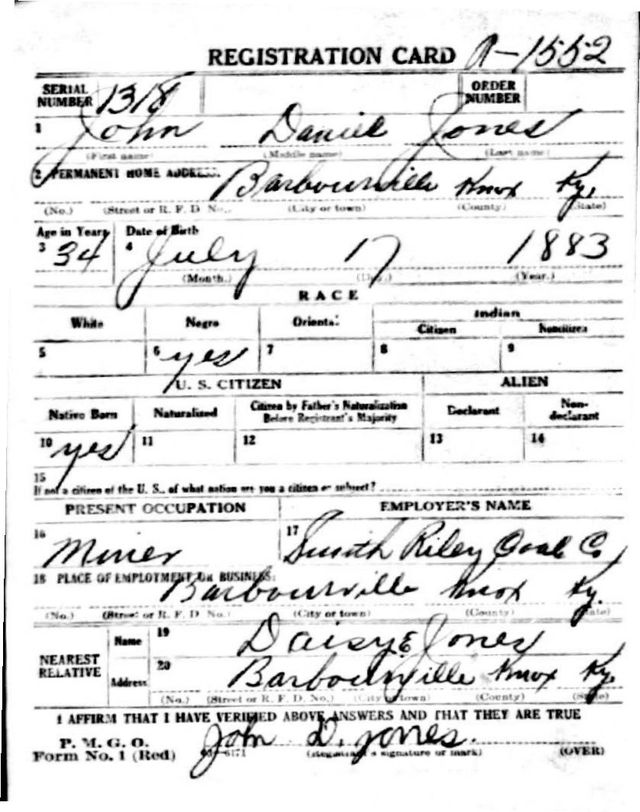 REGISTRATION CARD A-1552
SERIAL NUMBER 1318 ORDER NUMBER
1 John Daniel Jones
(First name) (Middle name) (Last name)
2 PERMANENT HOME ADDRESS: Barbourville Knox Ky.
(No.) (Street or R. F. D. No.) (City or town) (County) (State)
Age in Years Date of Birth
3 34 4 July 17 1883
(Month.) (Day.) (Year.)
RACE
White Negro Oriental Indian
Citizen Noncitizen
5 6 yes 7 8 9
U. S. CITIZEN ALIEN
Native Born Naturalized Citizen by Father's Naturalization Before Registrant's Majority Declarant Non-declarant
10 yes 11 12 13 14
15
If not a citizen of the U. S., of what nation are you a citizen or subject?
PRESENT OCCUPATION EMPLOYER'S NAME
16 Miner 17 Smith Riley Coal Co
18 PLACE OF EMPLOYMENT OR BUSINESS: Barbourville Knox Ky.
(No.) (Street or R. F. D. No.) (City or town) (County) (State)
NEAREST RELATIVE Name 19 Daisy E Jones
Address 20 Barbourville Knox Ky.
(No.) (Street or R. F. D. No.) (City or town) (County) (State)
I AFFIRM THAT I HAVE VERIFIED ABOVE ANSWERS AND THAT THEY ARE TRUE
P. M. G. O.
Form No. 1 (Red) John D. Jones.
(Registrant's signature or mark) (OVER)